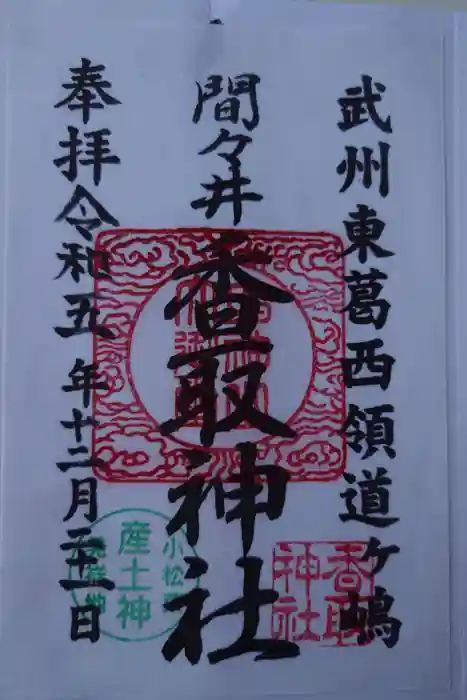 武州東葛西領道ヶ嶋
間々井
香取神社
奉拝
令和五年十二月日
香取
神社
小松菜
産土神
発祥地